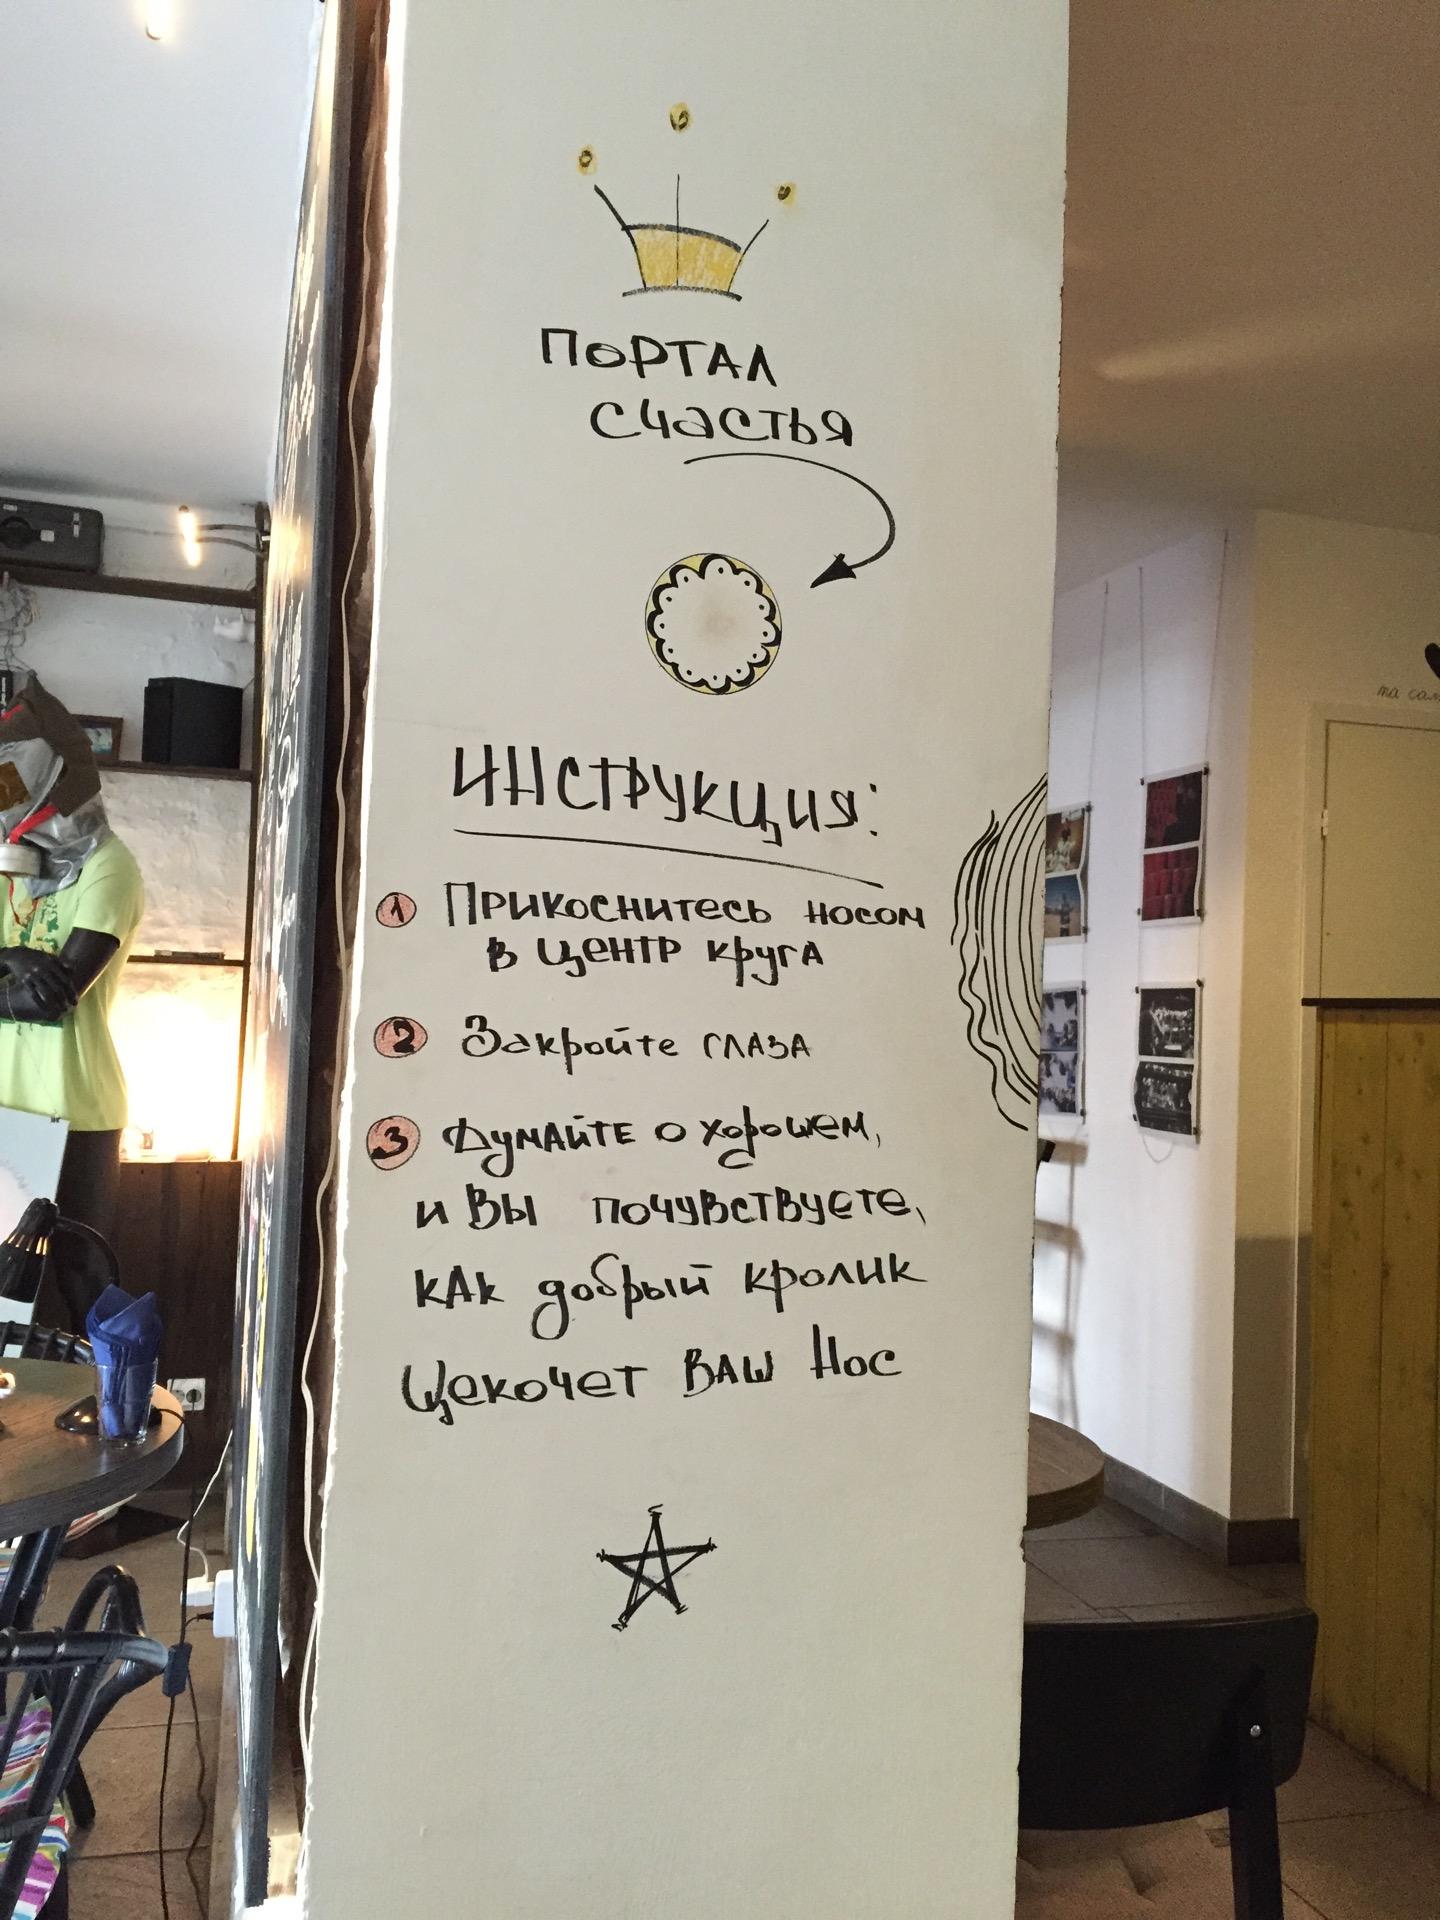 ПОРТАЛ
СЧАСТЬЯ
ИНСТРУКЦИЯ:
1 Прикоснитесь носом
в центр круга
2 Закройте глаза
3 Думайте о хорошем,
и Вы почувствуете,
как добрый кролик
щекочет ваш нос
та сам